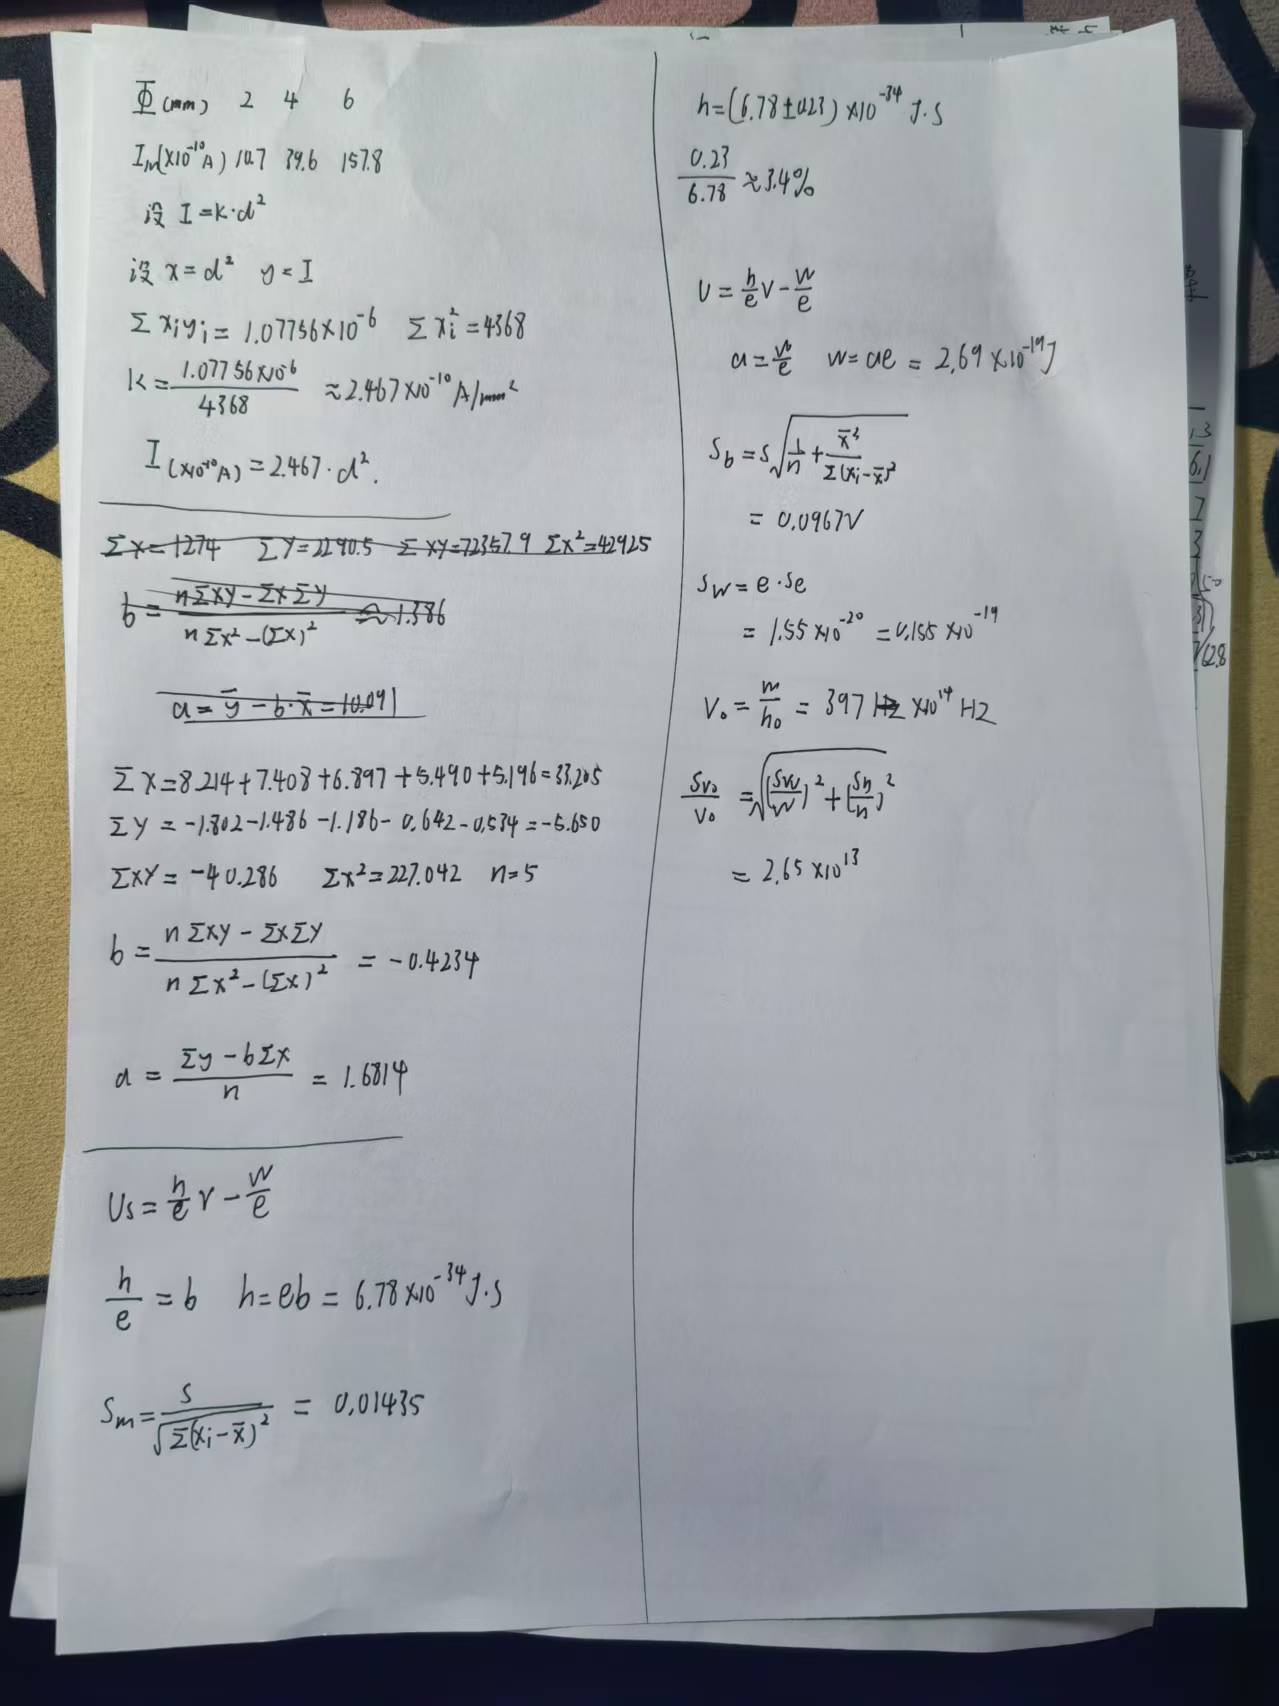 Φ(mm) 2 4 6
I_M(×10⁻¹⁰A) 10.7 39.6 157.8
设 I=k·d²
设 x=d² y=I
Σxᵢyᵢ=1.07756×10⁻⁶ Σxᵢ²=4368
k=1.07756×10⁻⁶/4368 ≈2.467×10⁻¹⁰A/mm²
I(×10⁻¹⁰A)=2.467·d².
Σx=1274 ΣY=2290.5 Σxy=72357.9 Σx²=42925
b=(nΣxy-ΣxΣy)/(nΣx²-(Σx)²) ≈1.386
a=ȳ-b·x̄=10.091
ΣX=8.214+7.408+6.897+5.490+5.196=33.205
ΣY=-1.802-1.486-1.186-0.642-0.534=-5.650
ΣXY=-40.286 Σx²=227.042 n=5
b=(nΣxy-ΣxΣy)/(nΣx²-(Σx)²) =-0.4234
a=(Σy-bΣx)/n =1.6814
Us=h/e ν-W/e
h/e=b h=eb=6.78×10⁻³⁴J·s
Sm=s/√Σ(xᵢ-x̄)² =0.01435
h=(6.78±0.23)×10⁻³⁴J·s
0.23/6.78≈3.4%
U=h/e ν-W/e
a=W/e W=ae=2.69×10⁻¹⁹J
S_b=s√(1/n+x̄²/Σ(xᵢ-x̄)²)
=0.0967V
S_W=e·Se
=1.55×10⁻²⁰=0.155×10⁻¹⁹
V₀=m/h₀=397 Hz ×10¹⁴HZ
Sν₀/ν₀=√((SW/W)²+(Sh/h)²)
=2.65×10¹³